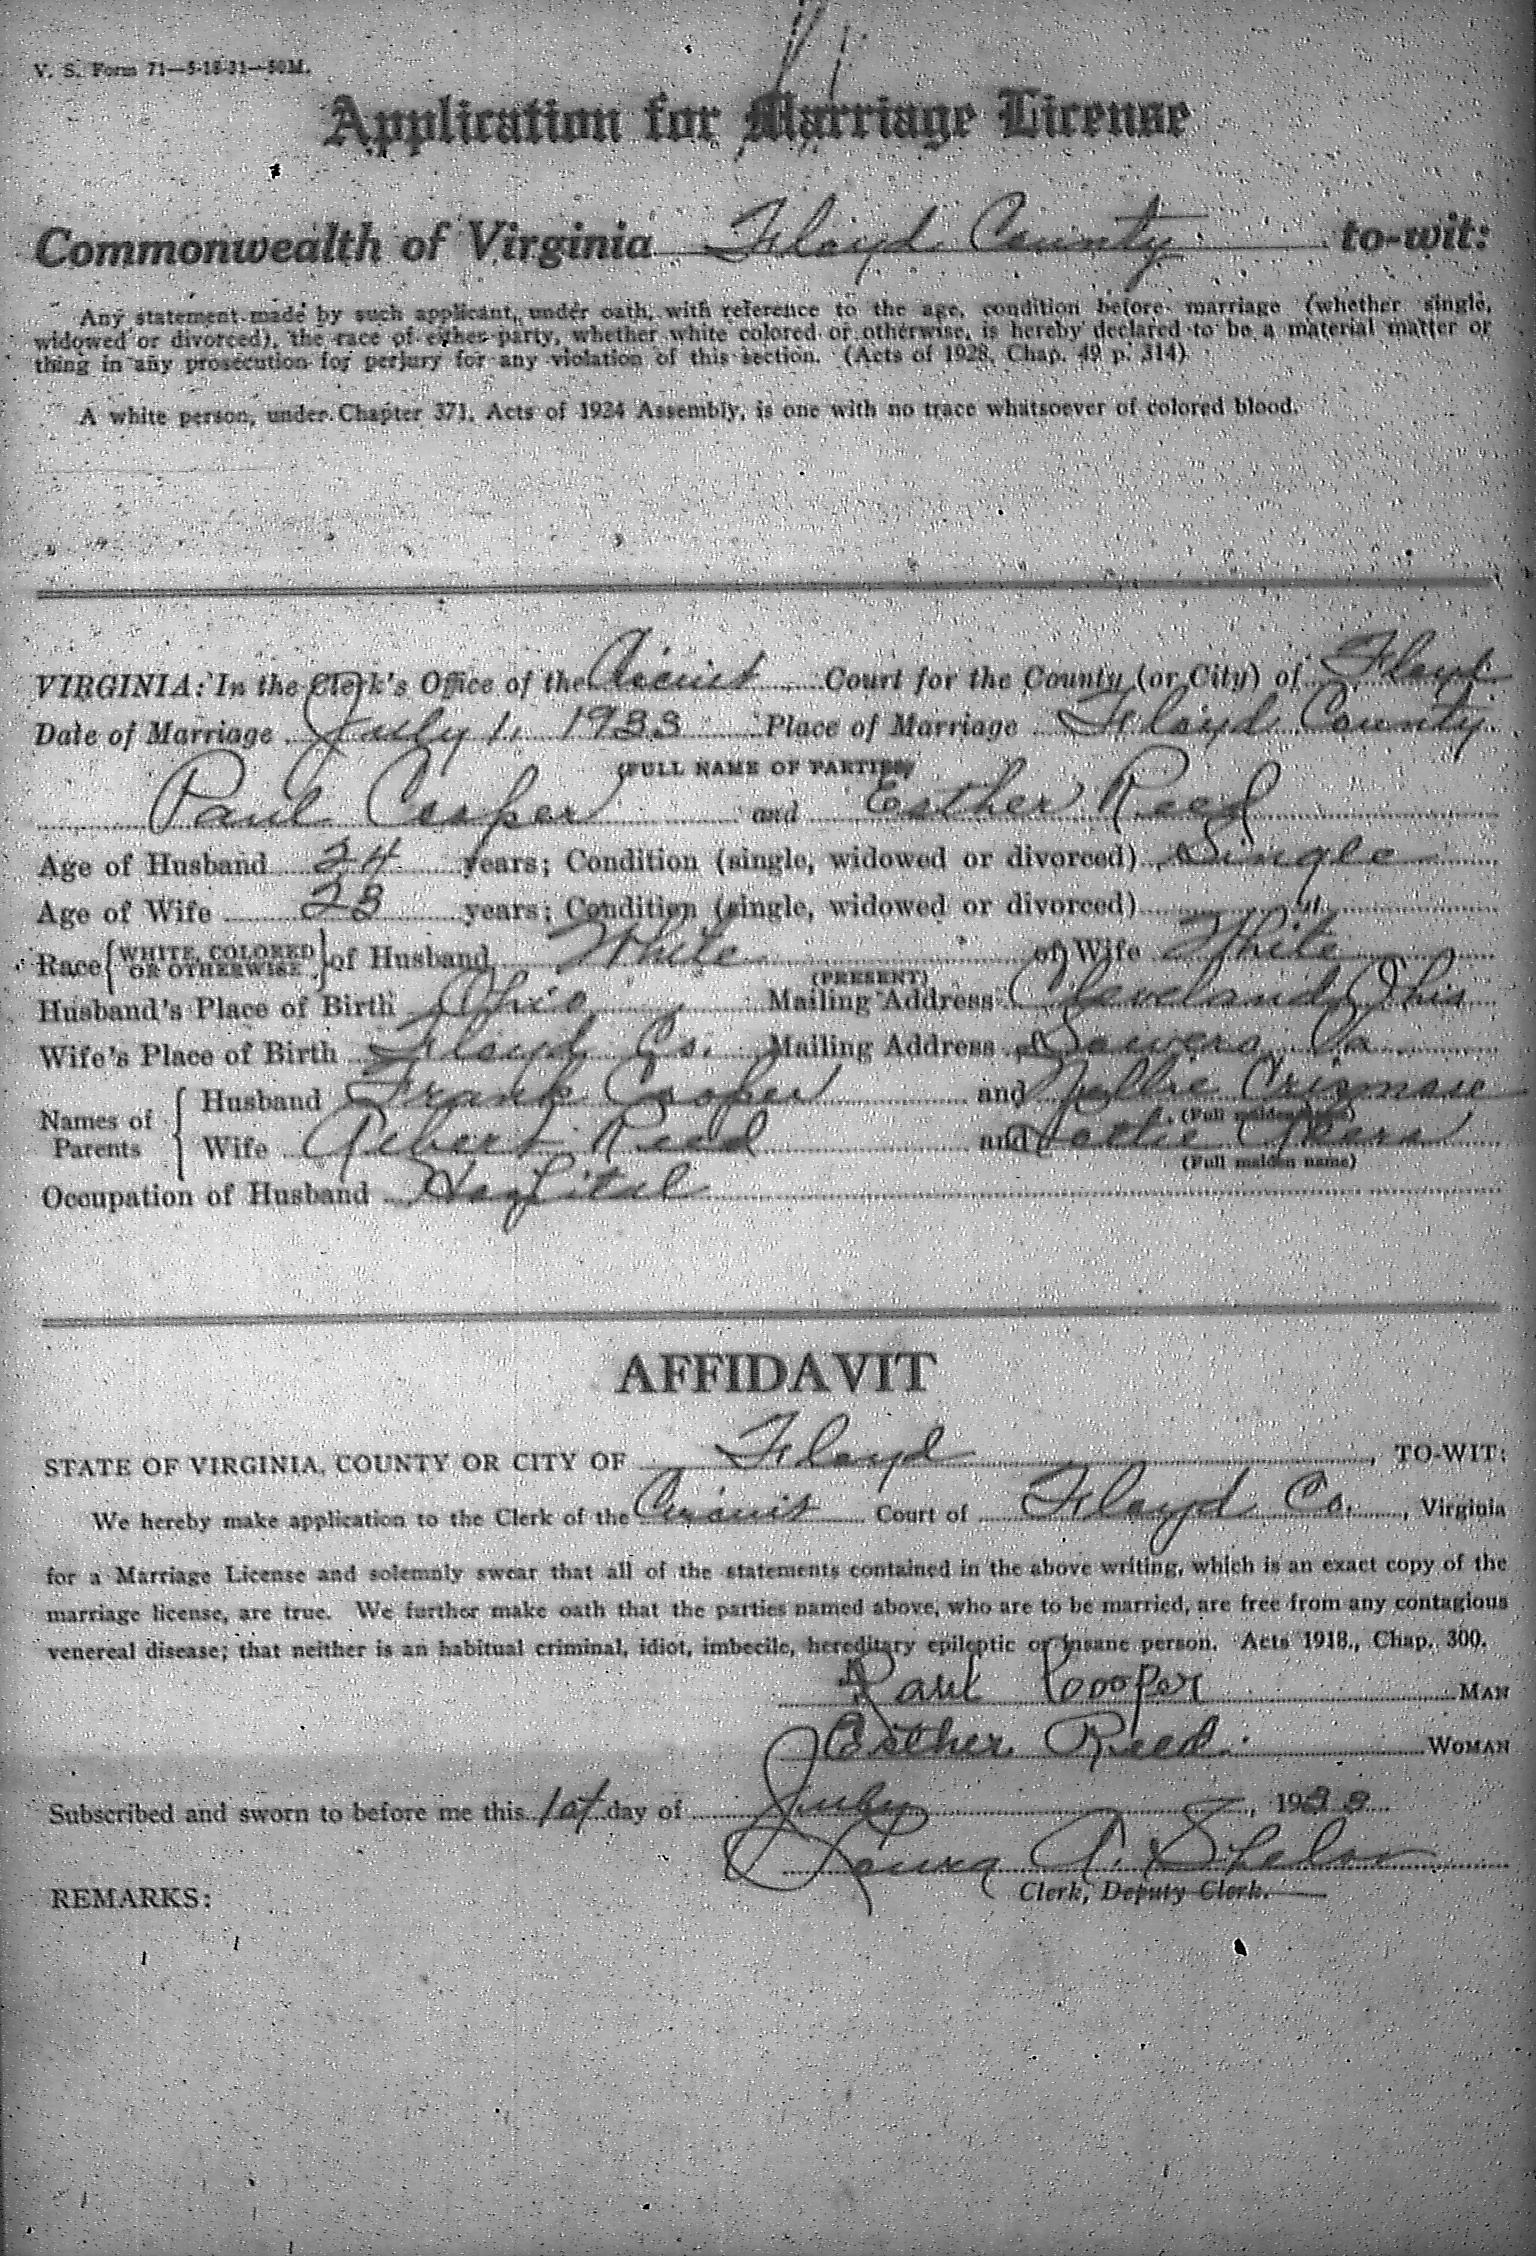 V. S. Form 71—5-18-31—50M.
Application for Marriage License
Commonwealth of Virginia Floyd County to-wit:
Any statement made by such applicant, under oath, with reference to the age, condition before marriage (whether single,
widowed or divorced), the race of either party, whether white colored or otherwise, is hereby declared to be a material matter or
thing in any prosecution for perjury for any violation of this section. (Acts of 1928, Chap. 49 p. 314)
A white person, under Chapter 371, Acts of 1924 Assembly, is one with no trace whatsoever of colored blood.
VIRGINIA: In the Clerk's Office of the Circuit Court for the County (or City) of Floyd
Date of Marriage July 1, 1933 Place of Marriage Floyd County
(FULL NAME OF PARTIES)
Paul Cooper and Esther Reed
Age of Husband 24 years; Condition (single, widowed or divorced) Single
Age of Wife 23 years; Condition (single, widowed or divorced) "
Race { WHITE, COLORED OR OTHERWISE } of Husband White of Wife White
(PRESENT)
Husband's Place of Birth Ohio Mailing Address Cleveland, Ohio
Wife's Place of Birth Floyd Co. Mailing Address Sowers, Va
Names of Parents { Husband Frank Cooper and Nellie
(Full maiden name)
Wife Albert Reed and Lottie Akers
(Full maiden name)
Occupation of Husband Hospital
AFFIDAVIT
STATE OF VIRGINIA, COUNTY OR CITY OF Floyd, TO-WIT:
We hereby make application to the Clerk of the Circuit Court of Floyd Co., Virginia
for a Marriage License and solemnly swear that all of the statements contained in the above writing, which is an exact copy of the
marriage license, are true. We further make oath that the parties named above, who are to be married, are free from any contagious
venereal disease; that neither is an habitual criminal, idiot, imbecile, hereditary epileptic or insane person. Acts 1918., Chap. 300.
Paul Cooper MAN
Esther Reed. WOMAN
Subscribed and sworn to before me this 1st day of July, 1933
A. Shelor
Clerk, Deputy Clerk.
REMARKS: